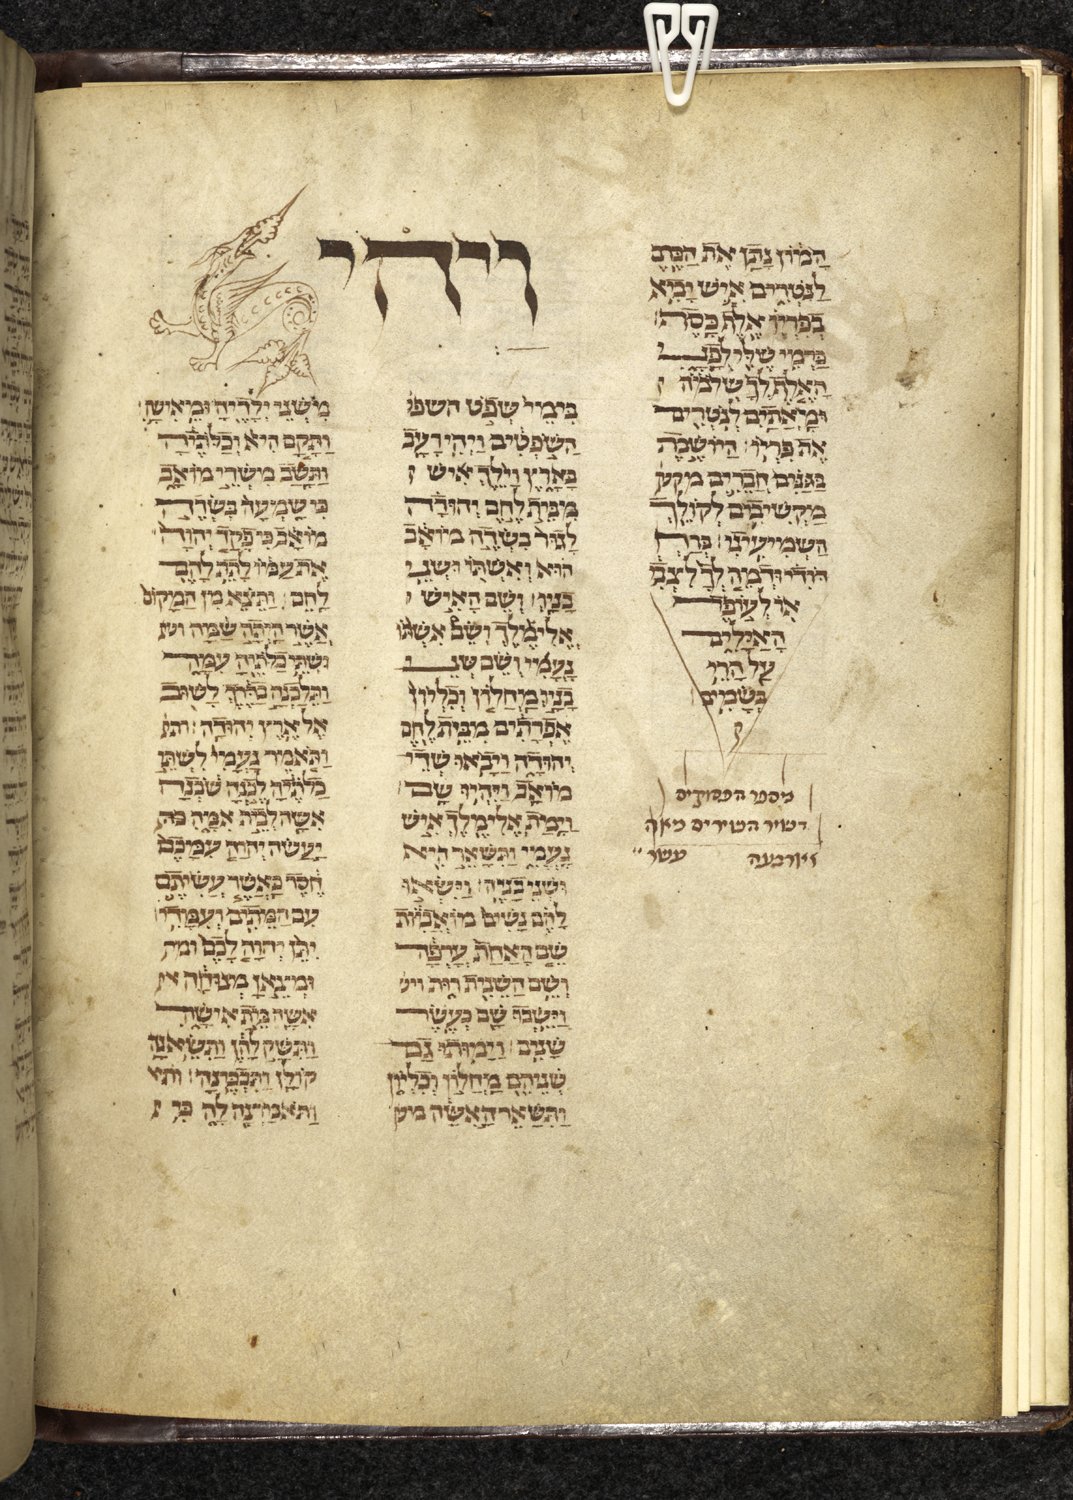 המון נתן את הכרם
לנטרים איש יביא
בפריו אלף כסף
כרמי שלי לפני
האלף לך שלמה
ומאתים לנטרים
את פריו היושבת
בגנים חברים מקש
מקשיבים לקולך
השמיעיני ברח
דודי ודמה לך לצבי
או לעופר
האילים
על הרי
בשמים
מספר הפסוקים
דשיר השירים מאה
וארבעה עשר
ויהי
בימי שפט השפ
השפטים ויהי רעב
בארץ וילך איש
מבית לחם יהודה
לגור בשדה מואב
הוא ואשתו ושני
בניו ושם האיש
אלימלך ושם אשתו
נעמי ושם שני
בניו מחלון וכליון
אפרתים מבית לחם
יהודה ויבאו שדי
מואב ויהיו שם
וימת אלימלך איש
נעמי ותשאר היא
ושני בניה וישאו
להם נשים מואביות
שם האחת ערפה
ושם השנית רות ויש
וישבו שם כעשר
שנים וימותו גם
שניהם מחלון וכליון
ותשאר האשה מש
משני ילדיה ומאישה
ותקם היא וכלתיה
ותשב משדי מואב
כי שמעה בשדה
מואב כי פקד יהוה
את עמו לתת להם
לחם ותצא מן המקום
אשר היתה שמה וש
ושתי כלתיה עמה
ותלכנה בדרך לשוב
אל ארץ יהודה ות
ותאמר נעמי לשתי
כלתיה לכנה שבנה
אשה לבית אמה
יעשה יהוה עמכם
חסד כאשר עשיתם
עם המתים ועמדי
יתן יהוה לכם ומ
ומצאן מנוחה א
אשה בית אישה
ותשק להן ותשאנה
קולן ותבכינה ות
ותאמרנה לה כי